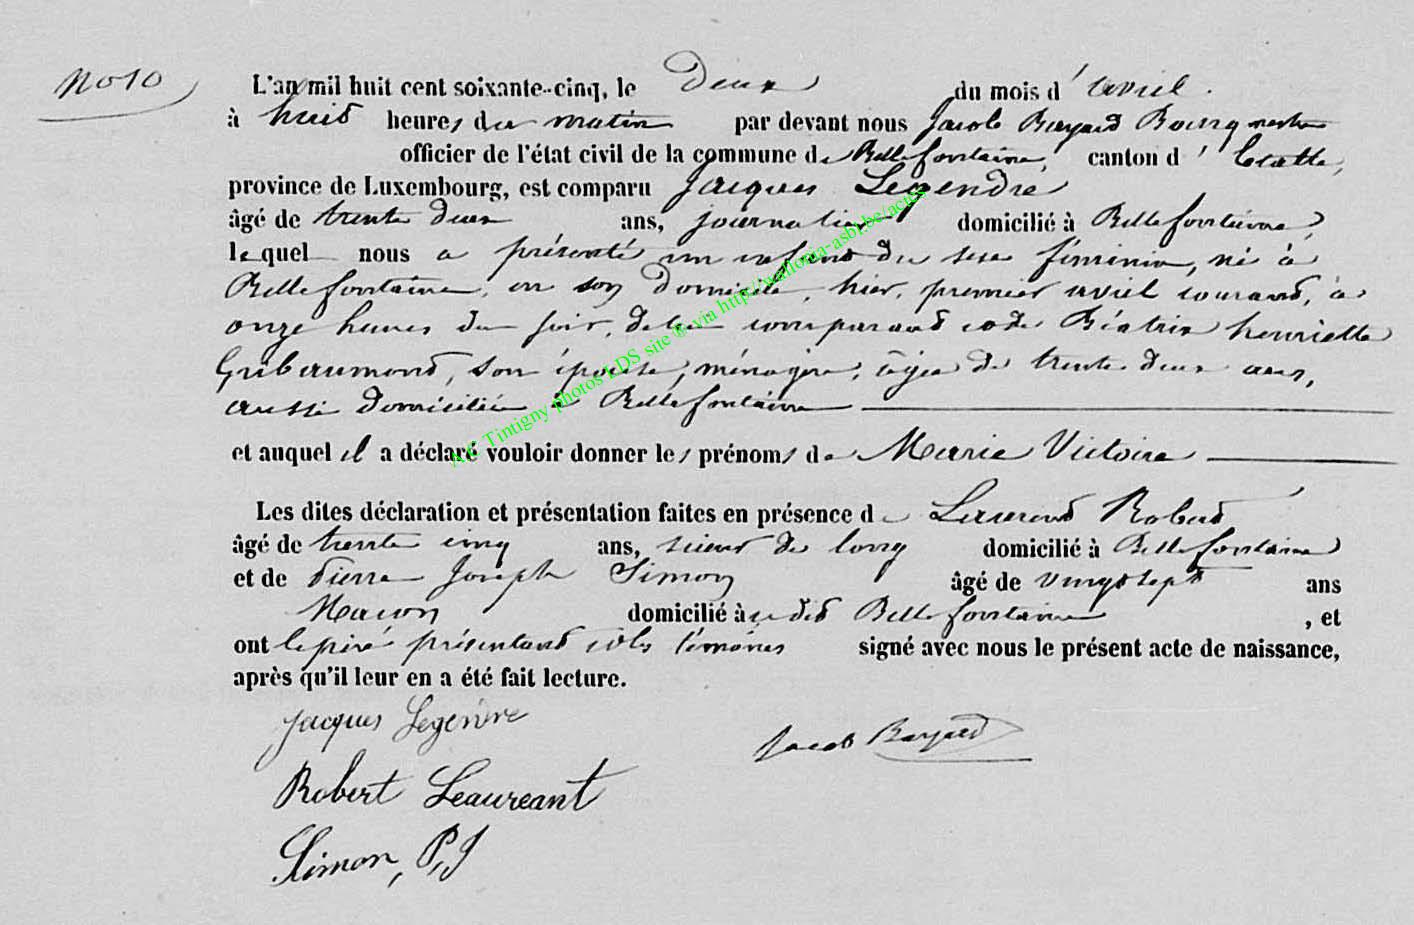 No 10
L'an mil huit cent soixante-cinq, le deux du mois d'avril.
à huit heures du matin par devant nous Jacob Bayard Bourgmestre
officier de l'état civil de la commune de Bellefontaine, canton d'Etalle,
province de Luxembourg, est comparu Jacques Legendre
âgé de trente deux ans, journalier domicilié à Bellefontaine,
lequel nous a présenté un enfant du sexe féminin, né à
Bellefontaine, en son domicile, hier, premier avril courant, à
onze heures du soir, de lui comparant et de Béatrix henriette
Gribaumont, son épouse, ménagère, âgée de trente deux ans,
aussi domiciliée à Bellefontaine
et auquel il a déclaré vouloir donner les prénoms de Marie Victoire
Les dites déclaration et présentation faites en présence de Laurent Robert
âgé de trente cinq ans, scieur de long domicilié à Bellefontaine
et de Pierre Joseph Simon âgé de vingt sept ans
Macon domicilié à Bellefontaine, et
ont le père présentant et les témoins signé avec nous le présent acte de naissance,
après qu'il leur en a été fait lecture.
Jacques Legendre
Jacob Bayard
Robert Leaureant
Simon, P, J
AC Tintigny photos LDS site ® via http://wallonia-asbl.be/actes